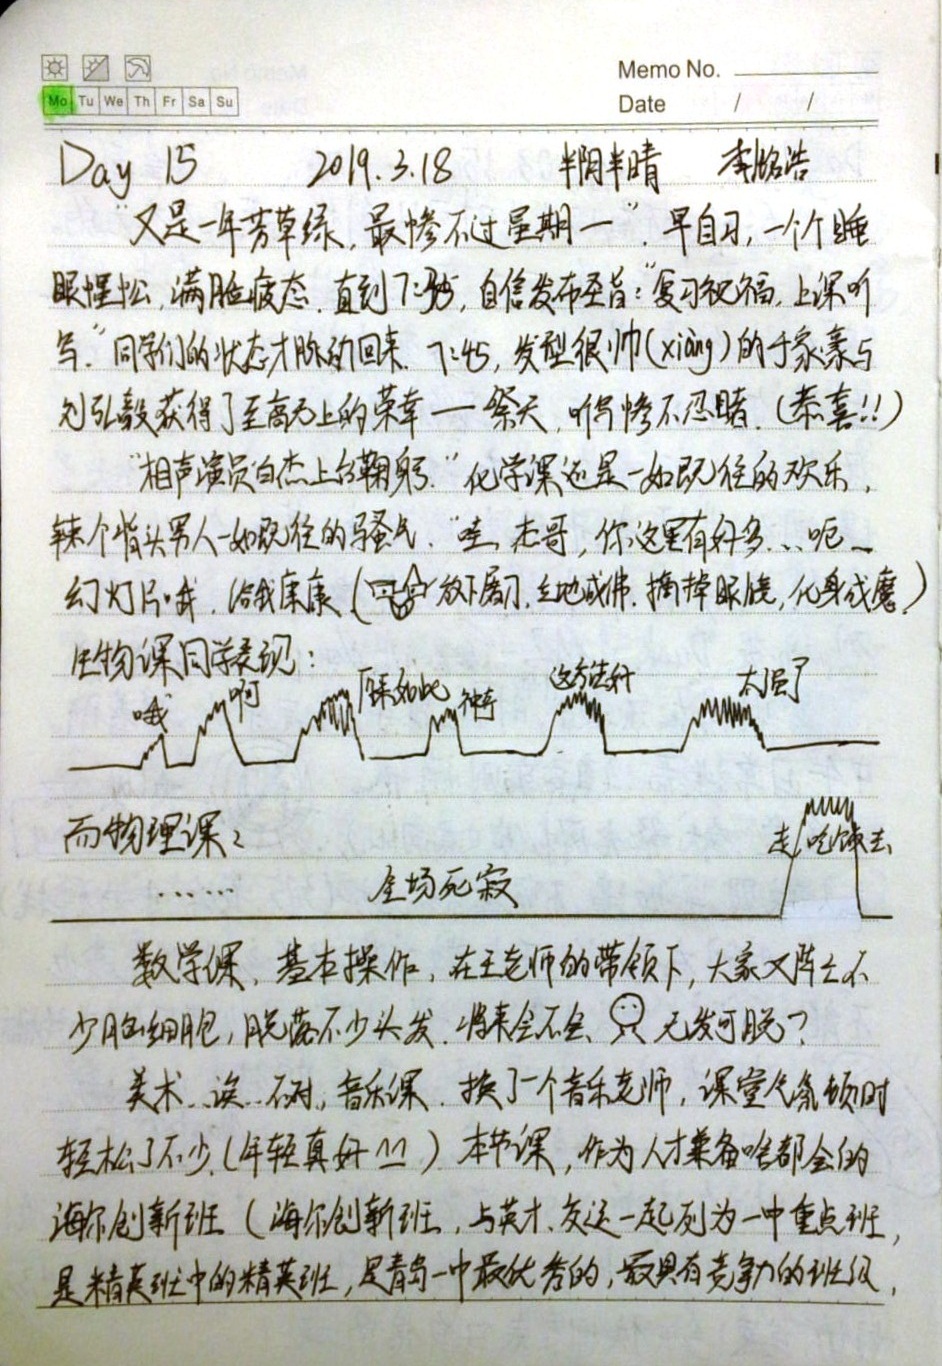 Memo No.
Mo Tu We Th Fr Sa Su
Date / /
Day 15 2019.3.18 半阴半晴 李铭浩
“又是一年芳草绿，最惨不过星期一”．早自习，一个个睡
眼惺忪，满脸疲态．直到7:35，自信发布圣旨：“复习祝福，上课听
写．”同学们的状态才脉动回来．7:45，发型很帅(xiàng)的于家豪与
刘弘毅获得了至高无上的荣幸——祭天，听写惨不忍睹．(恭喜!!)
“相声演员白杰上台鞠躬．”化学课还是一如既往的欢乐，
辣个背头男人一如既往的骚气．“哇，杰哥，你这里有好多...呃...
幻灯片哦，给我康康(放下屠刀，立地成佛．摘掉眼镜，化身成魔)
生物课同学表现：
哦 啊 原来如此 神奇 这方法好 太强了
而物理课：
走，吃饭去
...... 全场死寂
数学课，基本操作，在王老师的带领下，大家又阵亡不
少脑细胞，脱落不少头发．将来会不会 无发可脱？
美术...诶...不对，音乐课．换了一个音乐老师，课堂气氛顿时
轻松了不少．(年轻真好^^) 本节课，作为人才兼备啥都会的
海尔创新班(海尔创新班，与英才、交运一起列为一中重点班，
是精英班中的精英班，是青岛一中最优秀的，最具有竞争力的班级，